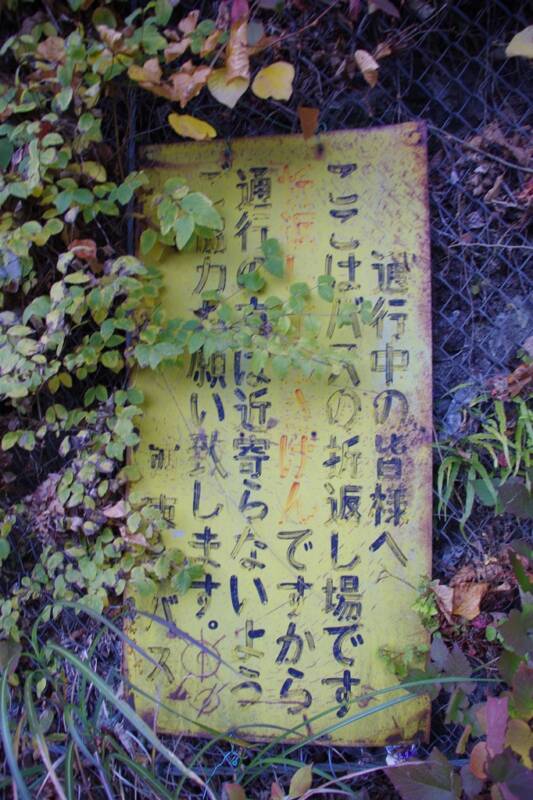 通行中の皆様へ
ここはバスの折返し場です
けんですから
通行の方は近寄らないよう
ご協力お願い致します。
バス